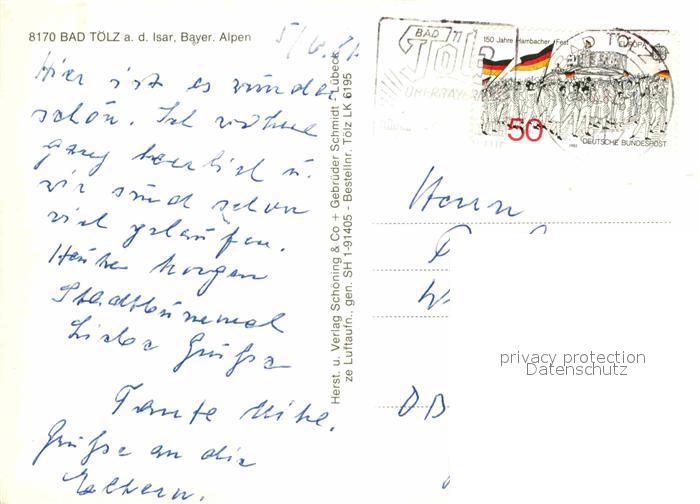 8170 BAD TÖLZ a. d. Isar, Bayer. Alpen
Hier ist es wunder
schön. Ich wohne
ganz herrlich u.
wir sind schon
viel gelaufen.
Heute morgen
Stadtbummel
Liebe Grüße
Tante
Grüße an die
Eltern.
Herst. u. Verlag Schöning & Co + Gebrüder Schmidt - Lübeck
ze Luftaufn., gen. SH 1-91405 - Bestellnr. Tölz LK 6195
BAD
Tölz
OBERBAYERN
150 Jahre Hambacher Fest
EUROPA
50
1982
DEUTSCHE BUNDESPOST
BAD TÖLZ
Herrn
privacy protection
Datenschutz